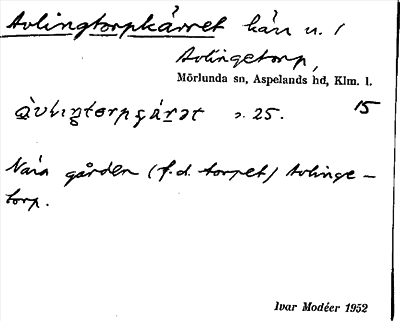 Avlingtorpkärret kärr u. /
Avlingetorp,
Mörlunda sn, Aspelands hd, Klm. l.
15
s. 25.
Nära gården (f.d. torpet) Avlinge-
torp.
Ivar Modéer 1952